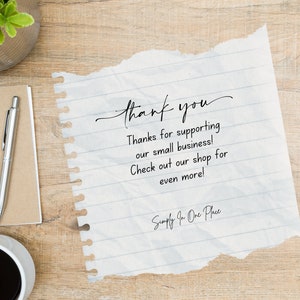 thank you
Thanks for supporting
our small business!
Check out our shop for
even more!
Simply In One Place